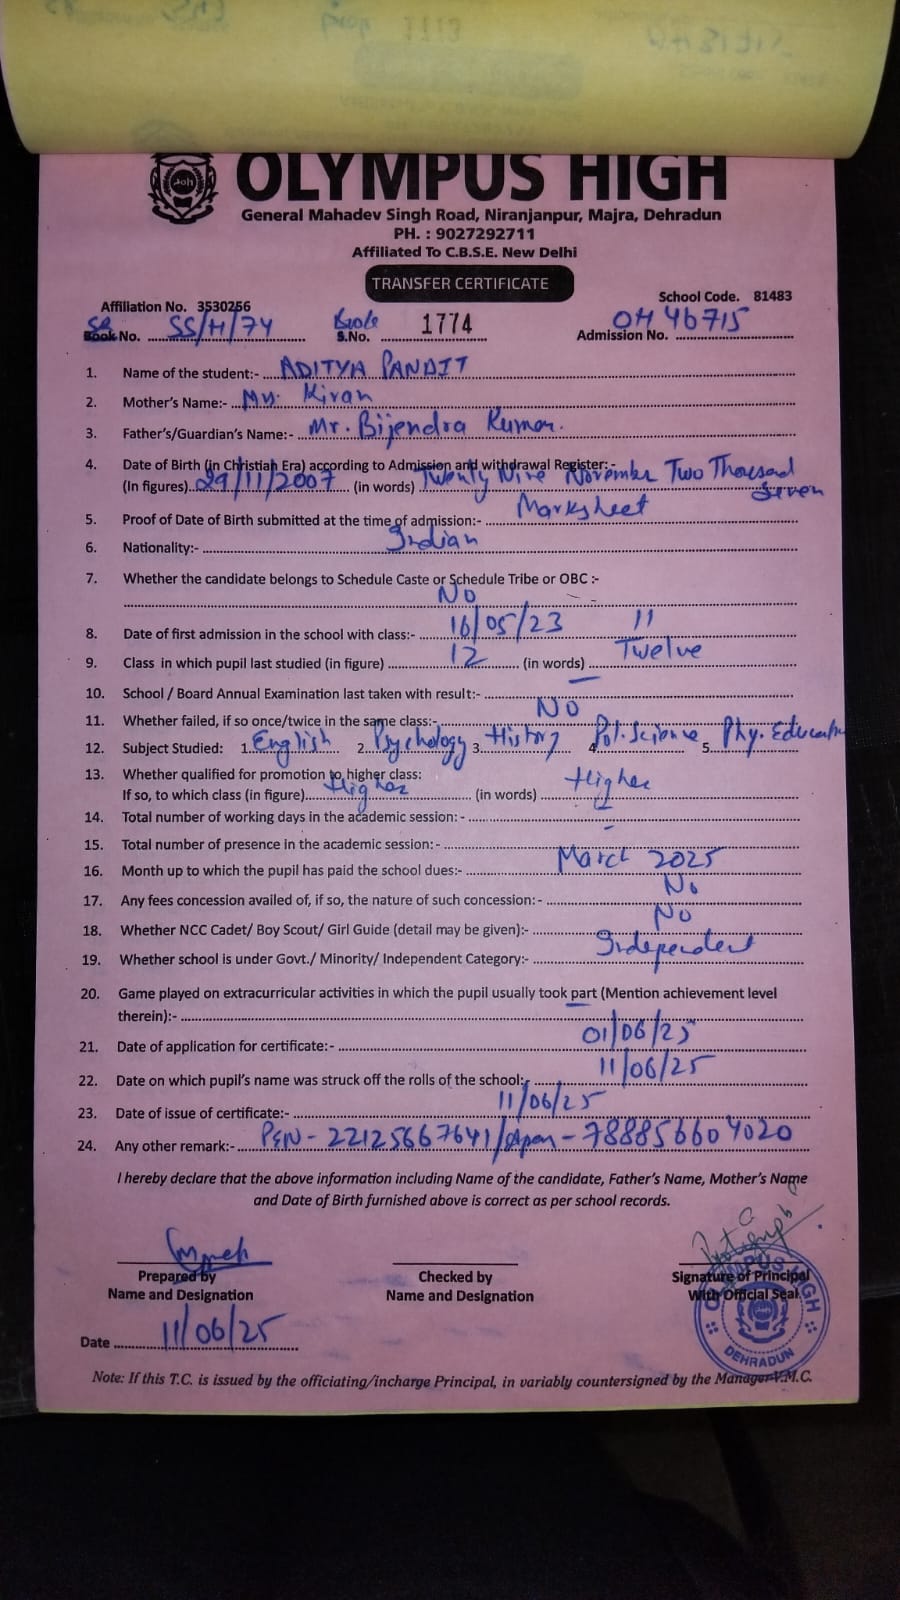 OLYMPUS HIGH
General Mahadev Singh Road, Niranjanpur, Majra, Dehradun
PH. : 9027292711
Affiliated To C.B.S.E. New Delhi
TRANSFER CERTIFICATE
Affiliation No. 3530256
School Code. 81483
SR Book No. SS/H/74 Book S.No. 1774 Admission No. OH 46715
1. Name of the student:- ADITYA PANDIT
2. Mother's Name:- Mrs. Kiran
3. Father's/Guardian's Name:- Mr. Bijendra Kumar.
4. Date of Birth (in Christian Era) according to Admission and withdrawal Register:-
(In figures) 29/11/2007 (in words) Twenty Nine November Two Thousand Seven
5. Proof of Date of Birth submitted at the time of admission:- Marksheet
6. Nationality:- Indian
7. Whether the candidate belongs to Schedule Caste or Schedule Tribe or OBC :-
No
8. Date of first admission in the school with class:- 16/05/23 11
9. Class in which pupil last studied (in figure) 12 (in words) Twelve
10. School / Board Annual Examination last taken with result:- —
11. Whether failed, if so once/twice in the same class:- NO
12. Subject Studied: 1. English 2. Psychology 3. History 4. Pol. Science 5. Phy. Education
13. Whether qualified for promotion to higher class:
If so, to which class (in figure) Higher (in words) Higher
14. Total number of working days in the academic session: - —
15. Total number of presence in the academic session:- -
16. Month up to which the pupil has paid the school dues:- March 2025
17. Any fees concession availed of, if so, the nature of such concession:- No
18. Whether NCC Cadet/ Boy Scout/ Girl Guide (detail may be given):- No
19. Whether school is under Govt./ Minority/ Independent Category:- Independent
20. Game played on extracurricular activities in which the pupil usually took part (Mention achievement level
therein):-
21. Date of application for certificate:- 01/06/25
22. Date on which pupil's name was struck off the rolls of the school:- 11/06/25
23. Date of issue of certificate:- 11/06/25
24. Any other remark:- PEN - 22125667641/Apar - 788856604020
I hereby declare that the above information including Name of the candidate, Father's Name, Mother's Name
and Date of Birth furnished above is correct as per school records.
Prepared by Checked by Signature of Principal
Name and Designation Name and Designation With Official Seal
OLYMPUS HIGH
DEHRADUN
Date 11/06/25
Note: If this T.C. is issued by the officiating/incharge Principal, in variably countersigned by the Manager V.M.C.